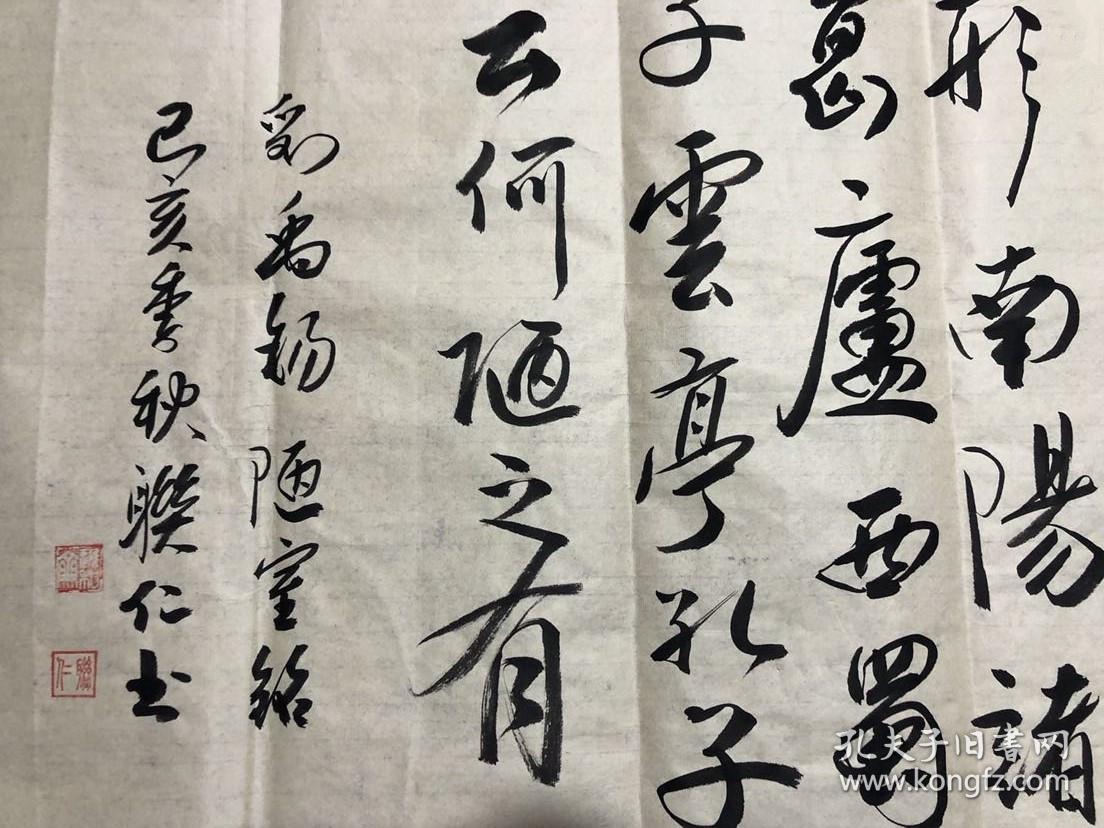 形南陽諸
葛廬西蜀
子雲亭孔子
云何陋之有
劉禹錫陋室銘
己亥季秋聯仁书
聯仁
孔夫子旧书网
www.kongfz.com